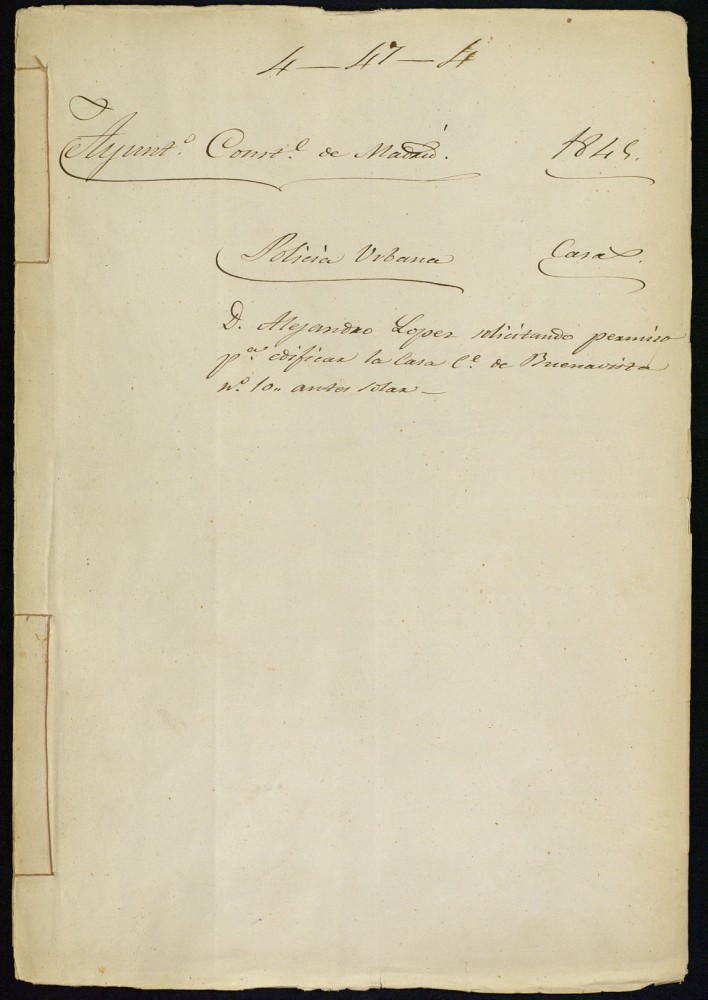 4 — 47 — 4
Ayunt.º Const.l de Madrid. 1845.
Policia Urbana Casas.
D. Alejandro Lopez solicitando permiso
p.a edificar la Casa C.e de Buenavista
n.º 10,, antes solar —